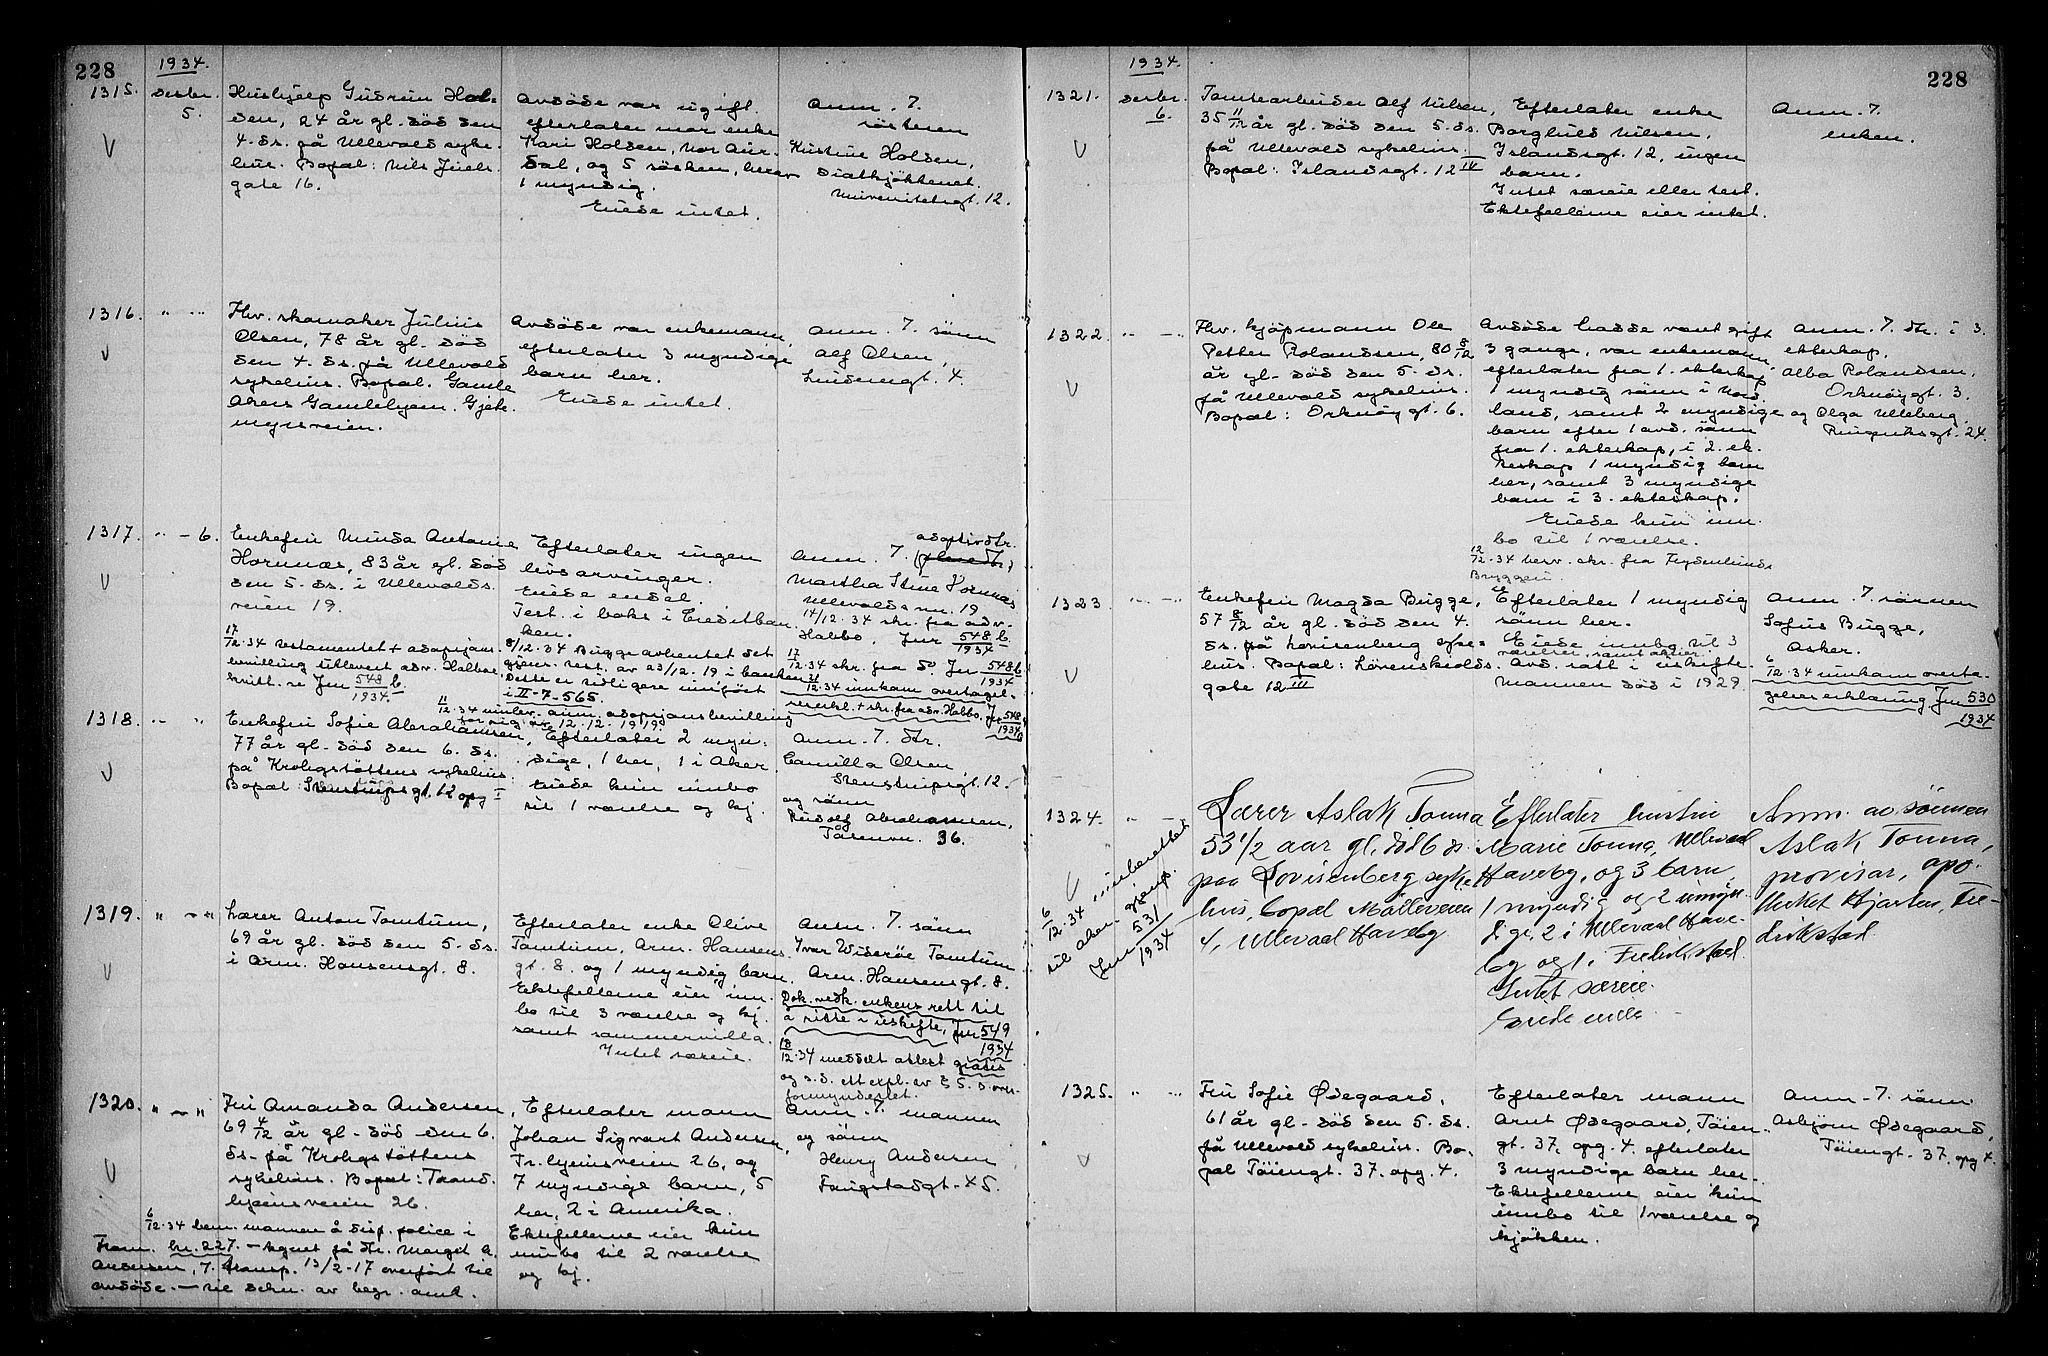 228
1934.
1315. Desbr. 5.
Hushjelp Gudrun Hol-
den, 24 år gl. död den
4. ds. på Ullevål syke-
hus. Bopæl: Nils Juels
gate 16.
Avdöde var ugift.
efterlater mor enke
Kari Holden, Nor Aur-
dal, og 5 sösken, herav
1 myndig.
Eiede intet.
Anm. 7.
sösteren
Kristine Holden,
Diætkjökkenet.
Universitetsgt. 12.
1316. " -"-
Fhv. skomaker Julius
Olsen, 78 år gl. död
den 4. ds. på Ullevold
sykehus. Bopæl. Gamle
Akers Gamlehjem. Gjete-
myrsveien.
Avdöde var enkemann,
efterlater 3 myndige
barn her.
Eiede intet.
Anm. 7. sönn
Alf Olsen,
Lindemgt. 4.
1317. " - 6.
Enkefru Minda Antonie
Hornnæs, 83 år gl. död
den 5. ds. i Ullevolds-
veien 19.
17/12.34 testamentet + adopsjons-
bevilling utlevert adv. Habbo,
kvitt. se Jnr 548 b/1934
Efterlater ingen
livsarvinger.
Eiede endel.
Test. i boks i Creditban-
ken.
8/12.34 Bugge avhentet det
gjens. test. av 23/12.19 i banken
Dette er tidligere innfört
i II-7-565.
11/12.34 innlev. anm. adopsjonsbevilling
for sig av 12.12.1919.
adoptivdtr.
Anm. 7. (plviedtr.)
Martha Stine Hornnæs
Ullevoldsvn. 19
14/12.34 skr. fra adv.
Habbo, Jnr 548 b/1934
17/12.34 skr. fra do Jnr 548 b/1934
21/12.34 innkom overtagel-
seserkl. + skr. fra adv. Habbo, Jnr 548 b/1934
1318. - "
Enkefru Sofie Abrahamsen,
77 år gl. död den 6. ds.
på Krohgstöttens sykehus.
Bopæl: Stenstrupsgt. 12 opg I
Efterlater 2 myn-
dige, 1 her, 1 i Aker.
Eiede kun innbo
til 1 værelse og kj.
Anm. 7. dtr.
Camilla Olsen
Stenstrupsgt. 12.
og sönn
Rudolf Abrahamsen,
Tåsenvn. 36.
1319. " - "
Lærer Anton Tomtum,
69 år gl. död den 5. ds.
i Arm. Hansensgt. 8.
Efterlater enke Olive
Tomtum, Arm. Hansens
gt. 8. og 1 myndig barn.
Ektefellerne eier inn-
bo til 3 værelse og kj.
samt sommervilla.
Intet særeie.
Anm. 7. sönn
Ivar Wideröe Tomtum
Arm. Hansensgt. 8.
Dok. vedk. enkens rett til
å sitte i uskifte, Jnr 549/1934
18/12.34 meddelt attest gratis
og s.d. ett expl. av § 5. s. over-
formynderiet.
1320. " - "
Fru Amanda Andersen,
69 4/12 år gl. död den 6.
ds. på Krohgstöttens
sykehus. Bopæl: Trond-
hjemsveien 26.
6/12.34 bem. mannen å disp. police i
Fram. nr. 227. - tegnet på dtr. Margit A.
Andersen, 7. transp. 13/2-17 overfört til
avdöde. - til dekn. av begr. omk.
Efterlater mann
Johan Sigvart Andersen,
Tr.hjemsveien 26, og
7 myndige barn, 5
her, 2 i Amerika.
Ektefellerne eier kun
innbo til 2 værelse
og kj.
Anm. 7. mannen
og sönn
Henry Andersen
Fougstadgt. 45.
1934.
228
1321. Desbr. 6.
Tomtearbeider Alf Nilsen,
35 11/12 år gl. död den 5. ds.
på Ullevold sykehus.
Bopæl: Islandsgt. 12 IV
Efterlater enke
Borghild Nilsen,
Islandsgt. 12, ingen
barn.
Intet særeie eller test.
Ektefellerne eier intet.
Anm. 7.
enken.
1322. " - "
Fhv. kjöpmann Ole
Petter Rolandsen, 80 8/12
år gl. död den 5. ds.
på Ullevold sykehus.
Bopæl: Orknöygt. 6.
Avdöde hadde vært gift
3 gange, var enkemann,
efterlater fra 1. ekteskap
1 myndig sönn i Nord-
land, samt 2 myndige
barn efter 1 avd. sönn
fra 1. ekteskap, i 2. ek-
teskap 1 myndig barn
her, samt 3 myndige
barn i 3. ekteskap.
Eiede kun inn-
bo til 1 værelse.
12/12.34 herv. skr. fra Frydenlunds
Bryggeri.
Anm. 7. dtr. i 3.
ekteskap.
Alba Rolandsen,
Orknöygt. 3.
og Olga Ulleberg,
Ringeriksgt. 24.
1323. - -
Enkefru Magda Bugge,
57 8/12 år gl. död den 4.
ds. på Lovisenberg syke-
hus. Bopæl: Lövenskiolds-
gate 12 III
Efterlater 1 myndig
sönn her.
Eiede innbo til 3
værelser, samt aktier.
Avd. satt i uskifte.
Mannen död i 1929.
Anm. 7. sönnen
Sofus Bugge,
Asker.
6/12.34 innkom overta-
gelseserklæring Jnr 530/1934
1324. - -
6/12.34 innberettet
til Aker. gjenp.
Jnr 531/1934
Lærer Aslak Tonna
53 1/2 aar gl. död 6 ds
paa Lovisenberg syke-
hus, bopæl Mölleveien
4, Ullevaal Haveby
Efterlater hustru
Marie Tonna, Ullevaal
Haveby, og 3 barn,
1 myndig og 2 umyn-
dige, 2 i Ullevaal Have-
by og 1 i Fredrikstad.
Intet særeie.
Eiede
Anm. av sönnen
Aslak Tonna,
provisor, apo-
theket Hjorten, Fre-
drikstad
1325. " - "
Fru Sofie Ødegaard,
61 år gl. död den 5. ds.
på Ullevold sykehus. Bo-
pæl Töiengt. 37. opg. 4.
Efterlater mann
Arnt Ødegaard, Töien-
gt. 37, opg. 4. efterlater
3 myndige barn her.
Ektefellerne eier kun
innbo til 1 værelse og
kjökken.
Anm. 7. sönn
Asbjörn Ødegaard,
Töiengt. 37. opg 4.